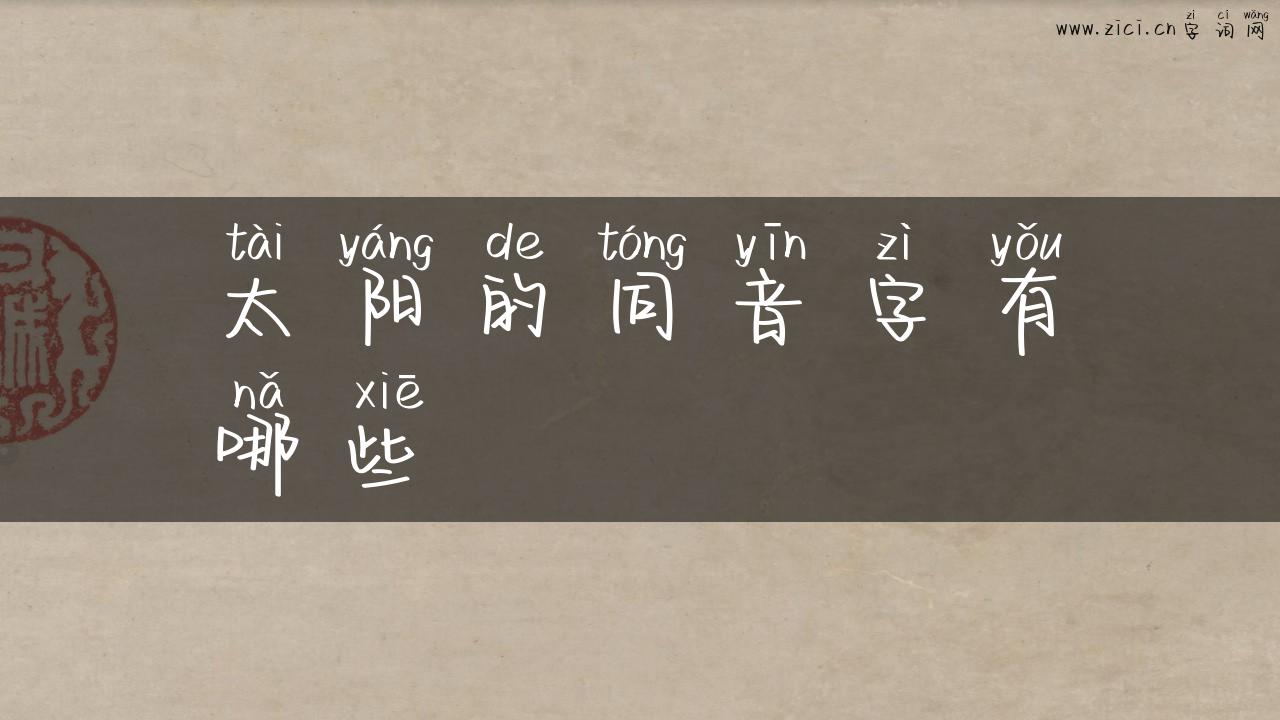 zì cí wǎng
www.zici.cn 字词网
tài yáng de tóng yīn zì yǒu
太阳的同音字有
nǎ xiē
哪些